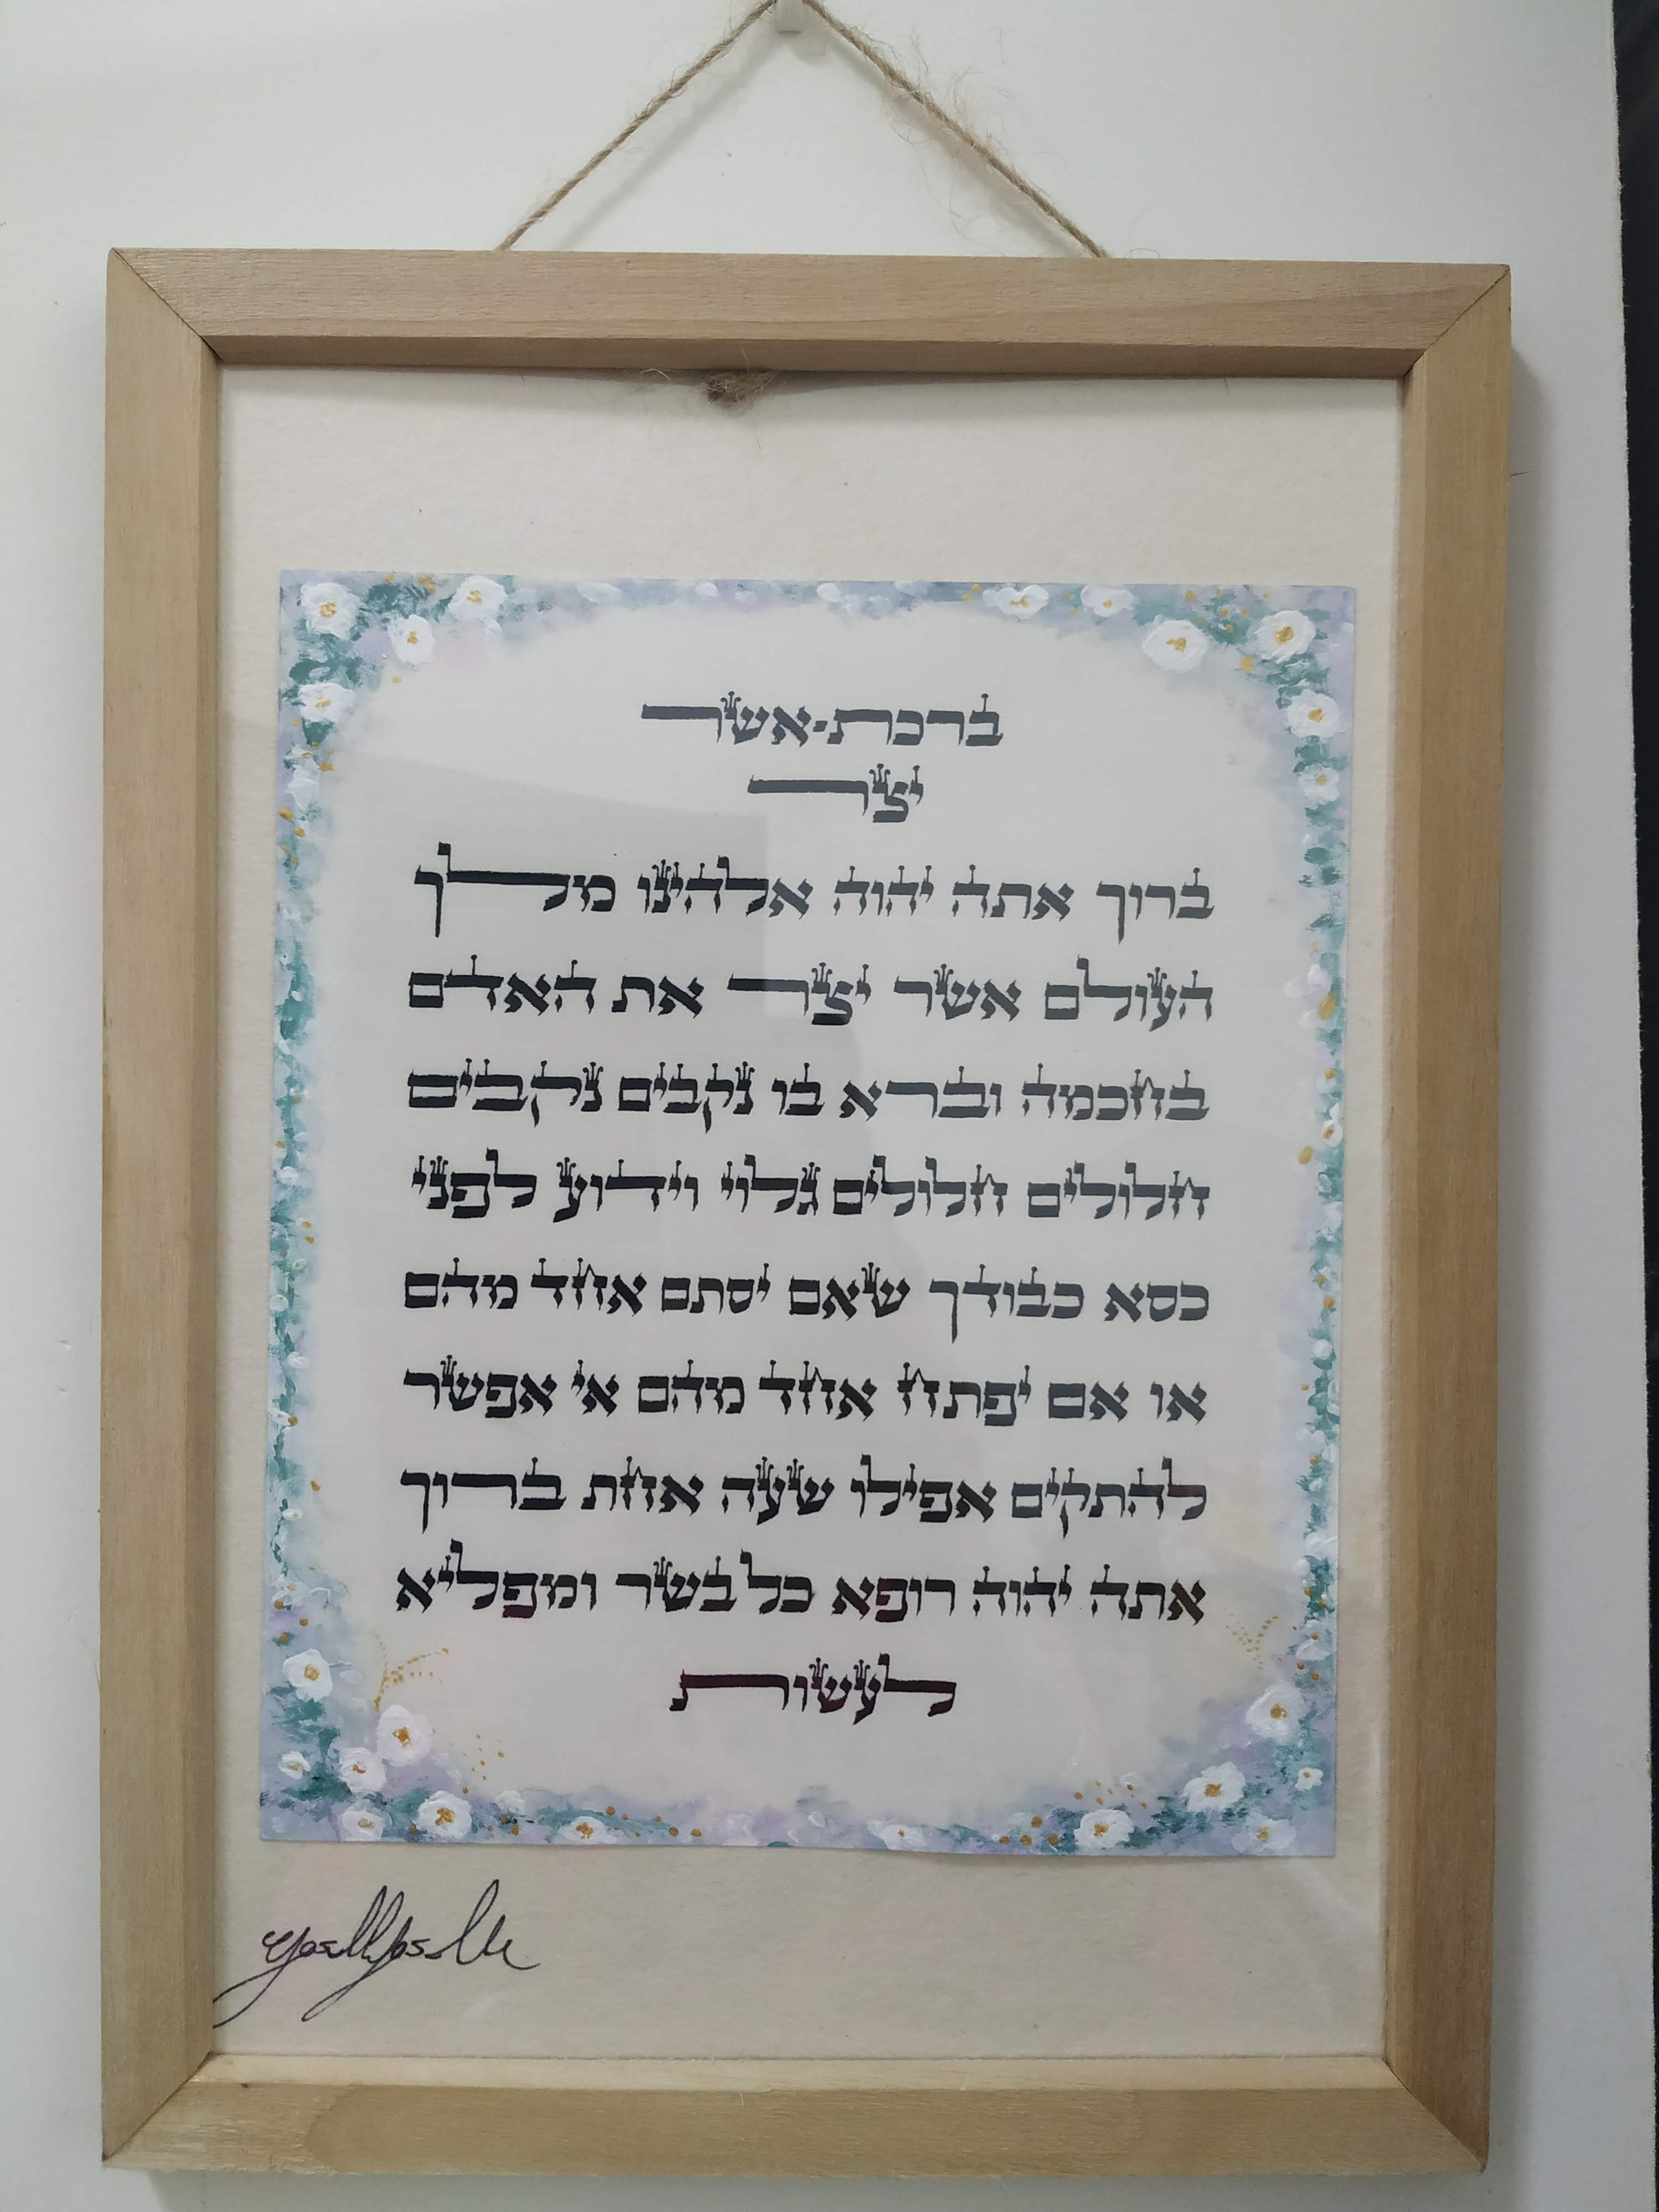 ברכת-אשר
יצר
ברוך אתה יהוה אלהינו מלך
העולם אשר יצר את האדם
בחכמה וברא בו נקבים נקבים
חלולים חלולים גלוי וידוע לפני
כסא כבודך שאם יסתם אחד מהם
או אם יפתח אחד מהם אי אפשר
להתקים אפילו שעה אחת ברוך
אתה יהוה רופא כל בשר ומפליא
לעשות